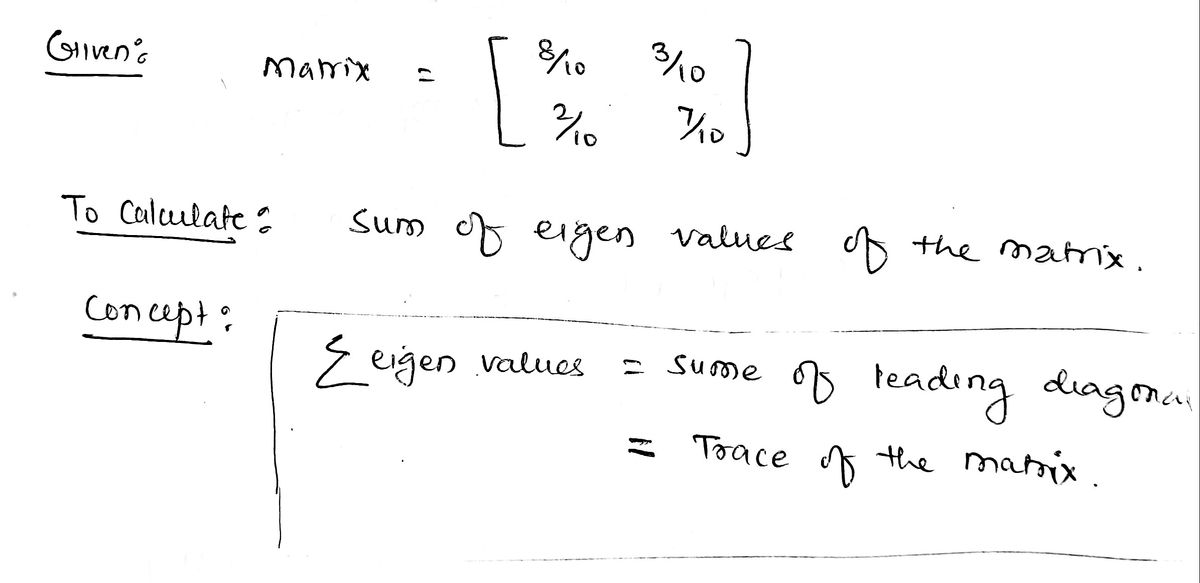 Given:
matrix = [ 8/10 3/10
2/10 7/10 ]
To Calculate: sum of eigen values of the matrix.
Concept:
∑ eigen values = sume of leading diagonal
= Trace of the matrix.